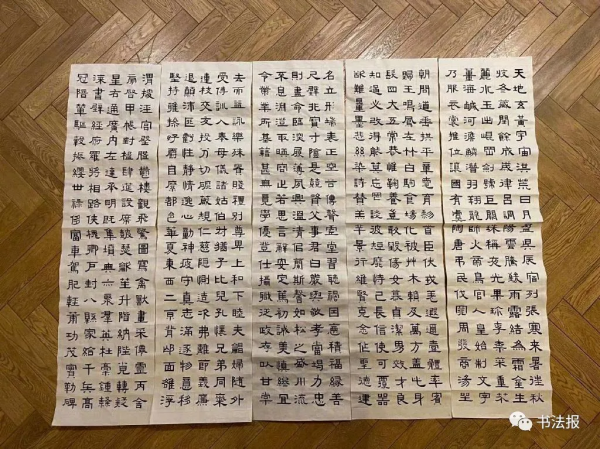 天地玄黃宇宙洪荒日月盈昃辰宿列張寒來暑往秋
收冬藏閏餘成歲律呂調陽雲騰致雨露結為霜金生
麗水玉出崐岡劍號巨闕珠稱夜光果珍李柰菜重芥
薑海鹹河淡鱗潛羽翔龍師火帝鳥官人皇始制文字
乃服衣裳推位讓國有虞陶唐弔民伐罪周發商湯坐
朝問道垂拱平章愛育黎首臣伏戎羌遐邇壹體率賓
歸王鳴鳳在白駒食場化被草木賴及萬方蓋此身
髮四大五常恭惟鞠養豈敢毀傷女慕貞潔男效才良
知過必改得能莫忘罔談彼短靡恃己長信使可覆器
欲難量墨悲絲染詩讚羔羊景行維賢克念作聖德建
名立形端表正空谷傳聲虛堂習聽禍因惡積福緣善
尺璧非寶寸陰是競資父事君曰嚴與敬孝當竭力忠
則盡命臨深履薄夙興溫凊似蘭斯馨如松之盛川流
不息淵澄取映容止若思言辭安定篤初誠美慎終宜
令榮業所基籍甚無竟學優登仕攝職從政存以甘棠
去而益詠樂殊貴賤禮別尊卑上和下睦夫唱婦隨外
受傅訓入奉母儀諸姑伯叔猶子比兒孔懷兄弟同氣
連枝交友投分切磨箴規仁慈隱惻造次弗離節義廉
退顛沛匪虧性靜情逸心動神疲守真志滿逐物意移
堅持雅操好爵自縻都邑華夏東西二京背邙面洛浮
渭據涇宮殿盤鬱樓觀飛驚圖寫禽獸畫采仙靈丙舍
傍啟甲帳對楹肆筵設席鼓瑟吹笙升階納陛弁轉疑
星右通廣內左達承明既集墳典亦聚群英杜稿鍾隸
漆書壁經府羅將相路俠槐卿戶封八縣家給千兵高
冠陪輦驅轂振纓世祿侈富車駕肥輕策功茂實勒碑
书法报